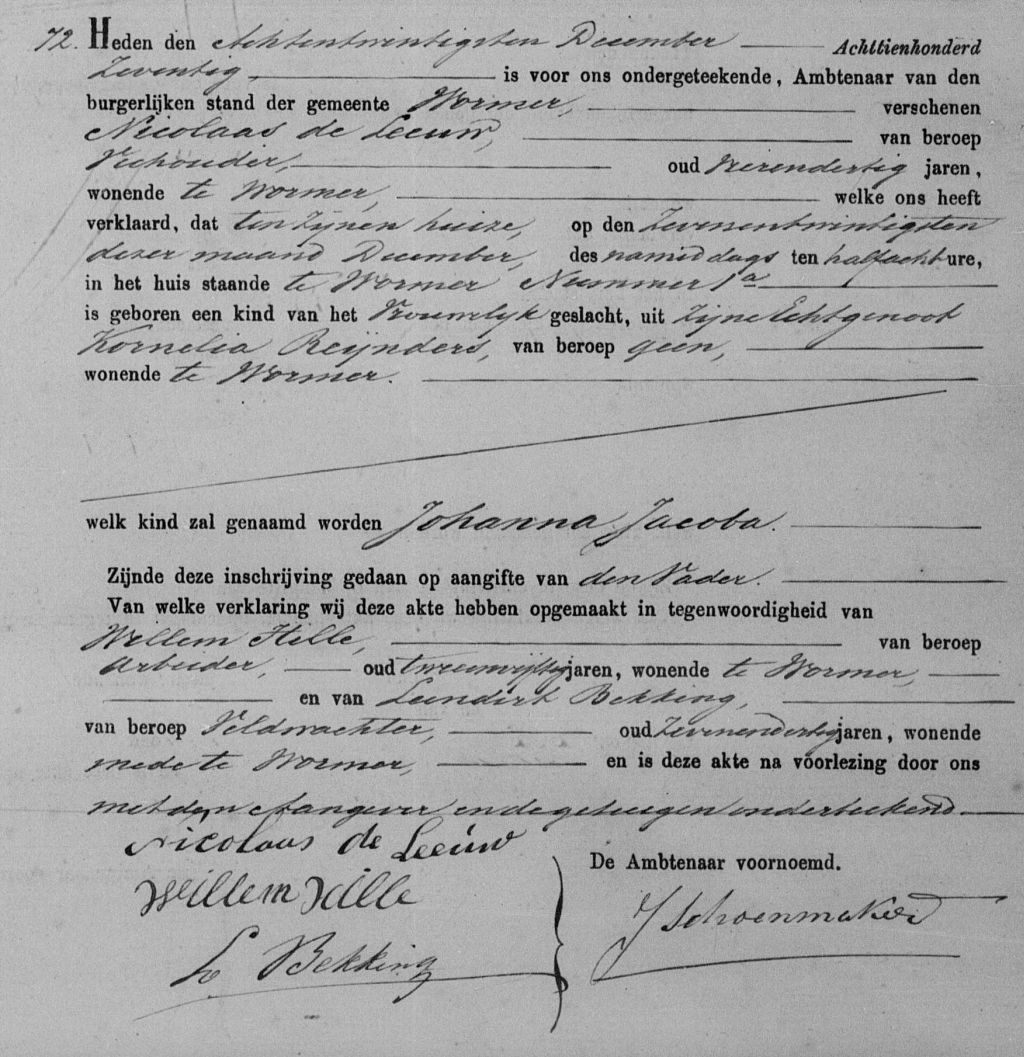 72. Heden den Achtentwintigsten December Achttienhonderd
Zeventig, is voor ons ondergeteekende, Ambtenaar van den
burgerlijken stand der gemeente Wormer, verschenen
Nicolaas de Leeuw, van beroep
Veehouder, oud vierendertig jaren,
wonende te Wormer, welke ons heeft
verklaard, dat ten zijnen huize, op den Zevenentwintigsten
dezer maand December, des namiddags ten half acht ure,
in het huis staande te Wormer Nummer 1a
is geboren een kind van het Vrouwelijk geslacht, uit zijne Echtgenoot
Kornelia Reijnders, van beroep geen,
wonende te Wormer.
welk kind zal genaamd worden Johanna Jacoba.
Zijnde deze inschrijving gedaan op aangifte van den Vader.
Van welke verklaring wij deze akte hebben opgemaakt in tegenwoordigheid van
Willem Hille, van beroep
Arbeider, oud jaren, wonende te Wormer,
en van Leendert Bekking,
van beroep Veldwachter, oud Zevenendertig jaren, wonende
mede te Wormer, en is deze akte na voorlezing door ons
met den Aangever en de getuigen onderteekend.
Nicolaas de Leeuw
Willem Hille
L Bekking
De Ambtenaar voornoemd.
J Schoenmaker